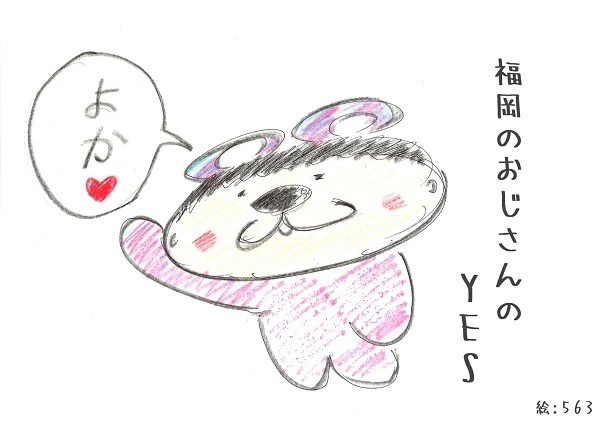 福岡のおじさんの
YES
よか♥
絵:563